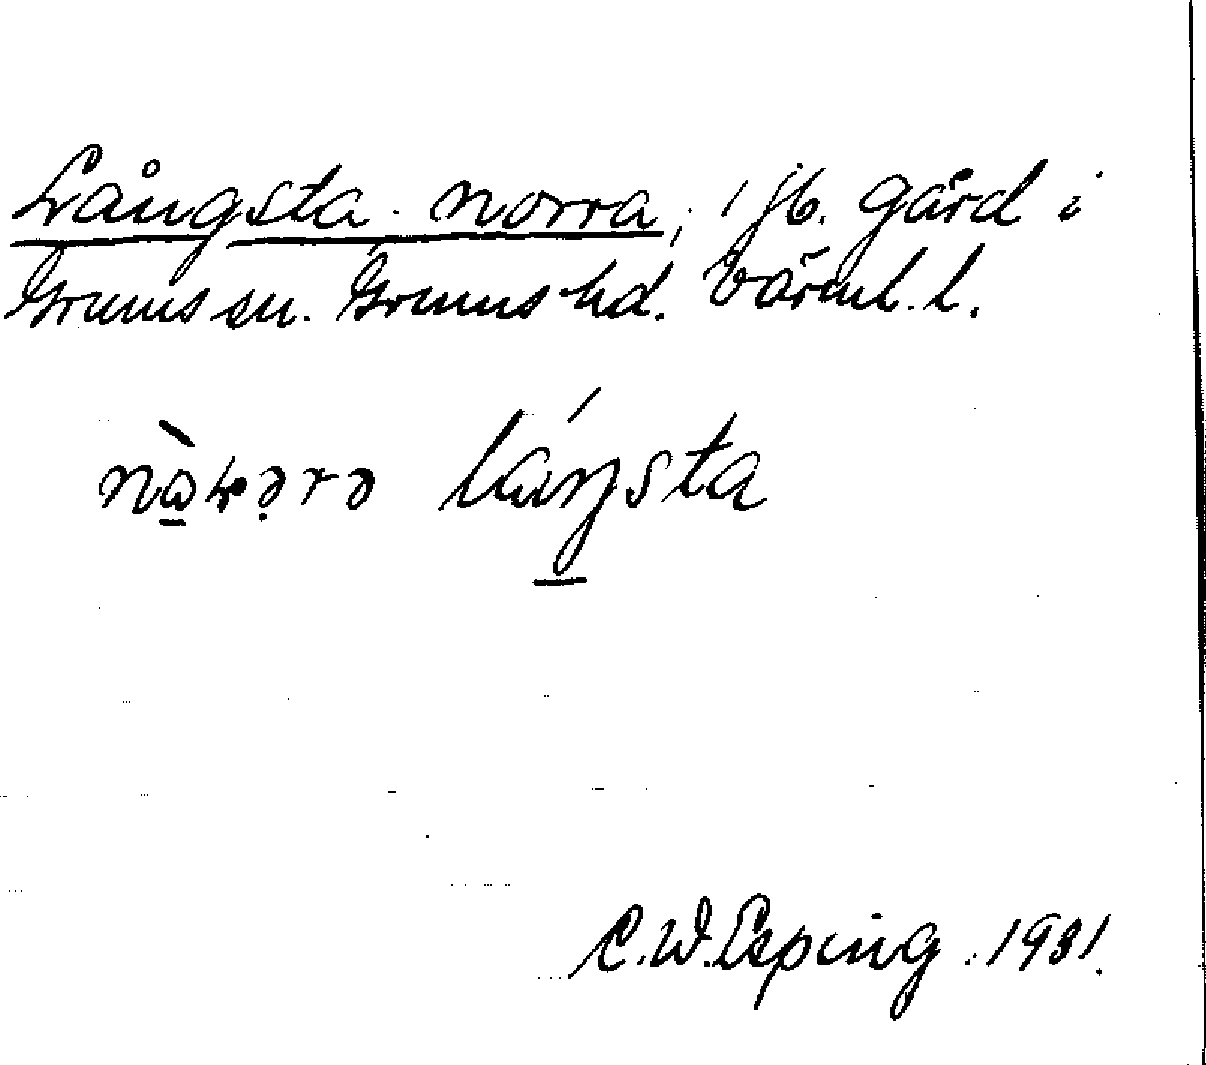 Långsta norra, jb. gård i
Grums sn. Grums hd. Värml. l.
láŋsta
C. W. Esping. 1931.